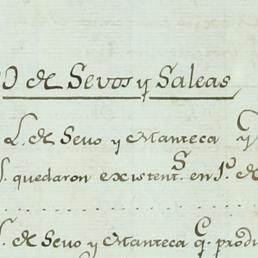 O de Sevos y Saleas
L. de Sevo y Manteca q
S. quedaron existents. en 1º. de
S. de Sevo y Manteca q. produ